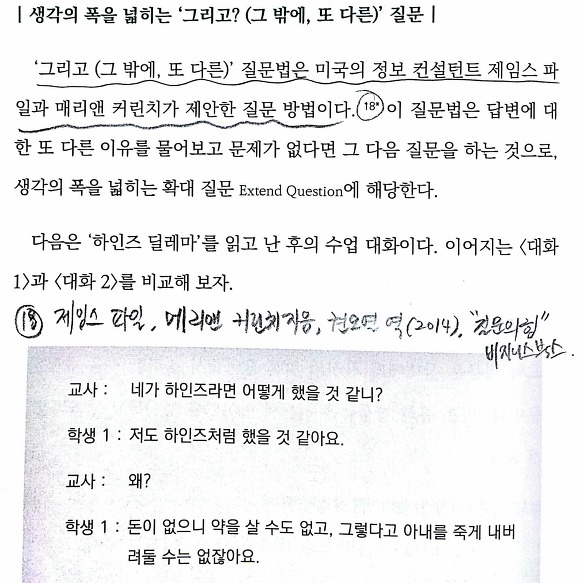 | 생각의 폭을 넓히는 ‘그리고? (그 밖에, 또 다른)’ 질문 |
‘그리고 (그 밖에, 또 다른)’ 질문법은 미국의 정보 컨설턴트 제임스 파
일과 매리앤 커린치가 제안한 질문 방법이다. 18* 이 질문법은 답변에 대
한 또 다른 이유를 물어보고 문제가 없다면 그 다음 질문을 하는 것으로,
생각의 폭을 넓히는 확대 질문 Extend Question에 해당한다.
다음은 ‘하인즈 딜레마’를 읽고 난 후의 수업 대화이다. 이어지는 〈대화
1〉과 〈대화 2〉를 비교해 보자.
⑱ 제임스 파일, 메리앤 커린치지음, 권오열 역(2014), "질문의힘"
비지니스북스.
교사 : 네가 하인즈라면 어떻게 했을 것 같니?
학생 1 : 저도 하인즈처럼 했을 것 같아요.
교사 : 왜?
학생 1 : 돈이 없으니 약을 살 수도 없고, 그렇다고 아내를 죽게 내버
려둘 수는 없잖아요.